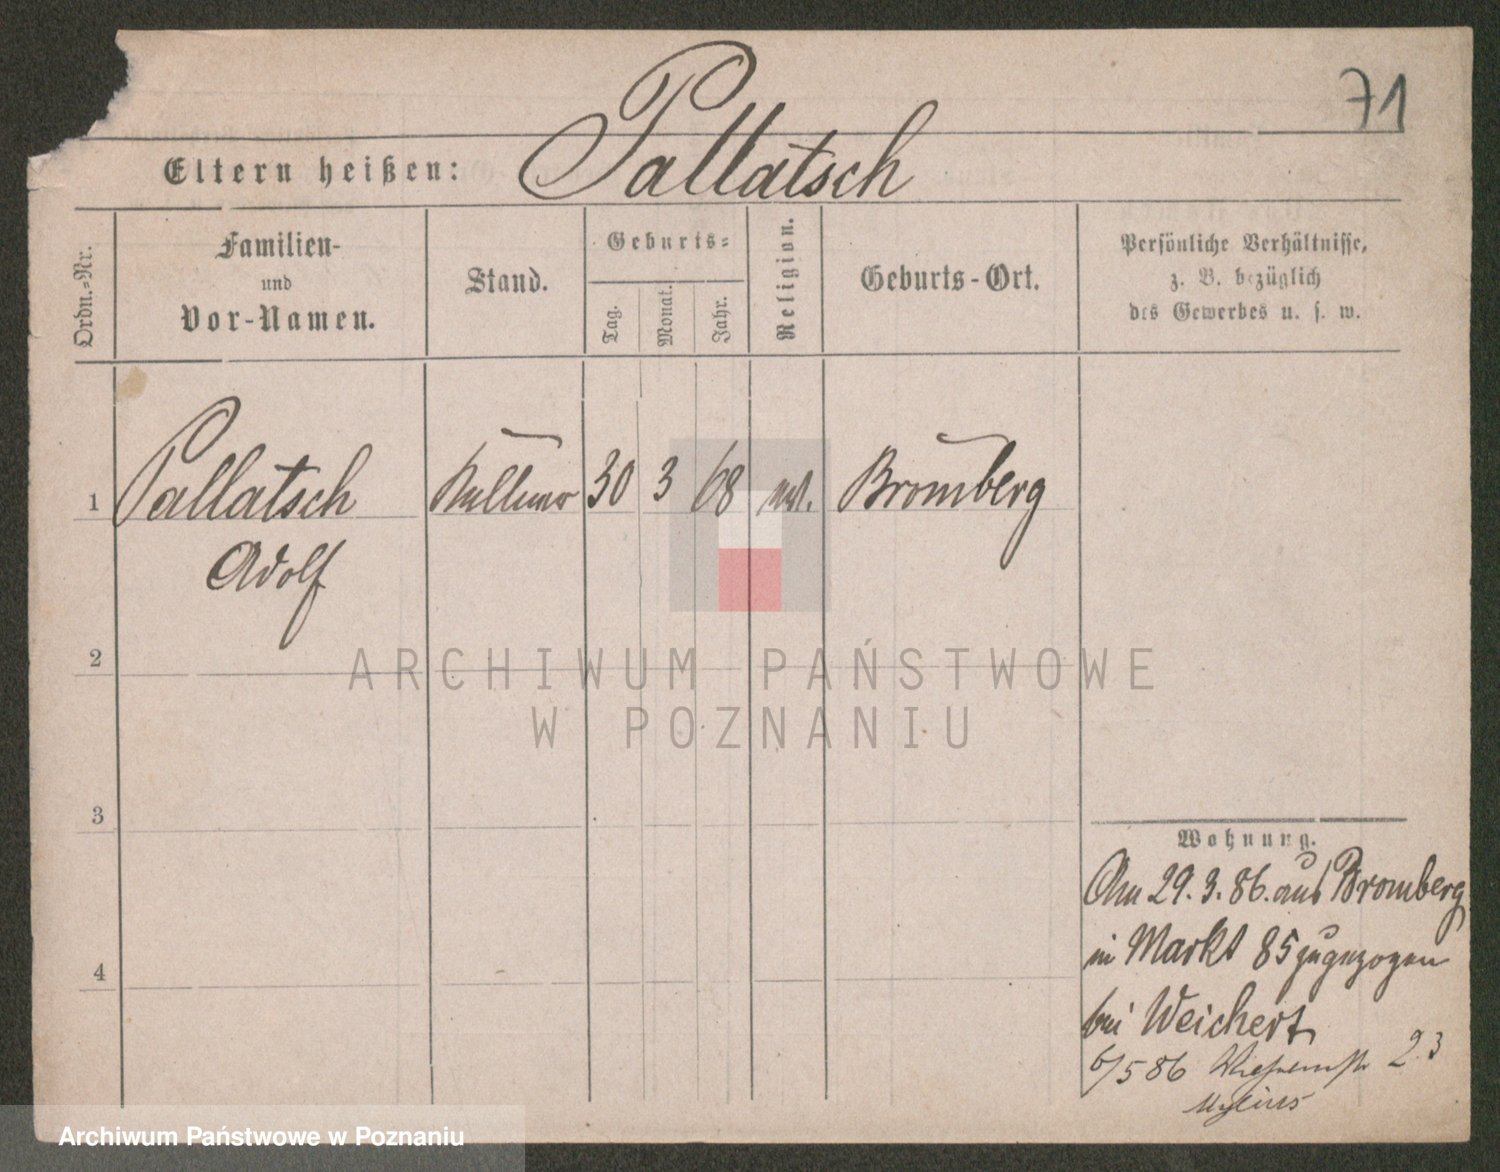 71
Eltern heißen: Pallatsch
Ordn.-Nr.
Familien-
und
Vor-Namen.
Stand.
Geburts-
Tag.
Monat.
Jahr.
Religion.
Geburts-Ort.
Persönliche Verhältnisse,
z. B. bezüglich
des Gewerbes u. s. w.
1 Pallatsch Kellner 30 3 68 Bromberg
Adolf
2
3
4
ARCHIWUM PAŃSTWOWE
W POZNANIU
Wohnung.
Am 29.3.86. aus Bromberg
in Markt 85 zugezogen
bei Weichert
6/5 86 23
Mylius
Archiwum Państwowe w Poznaniu